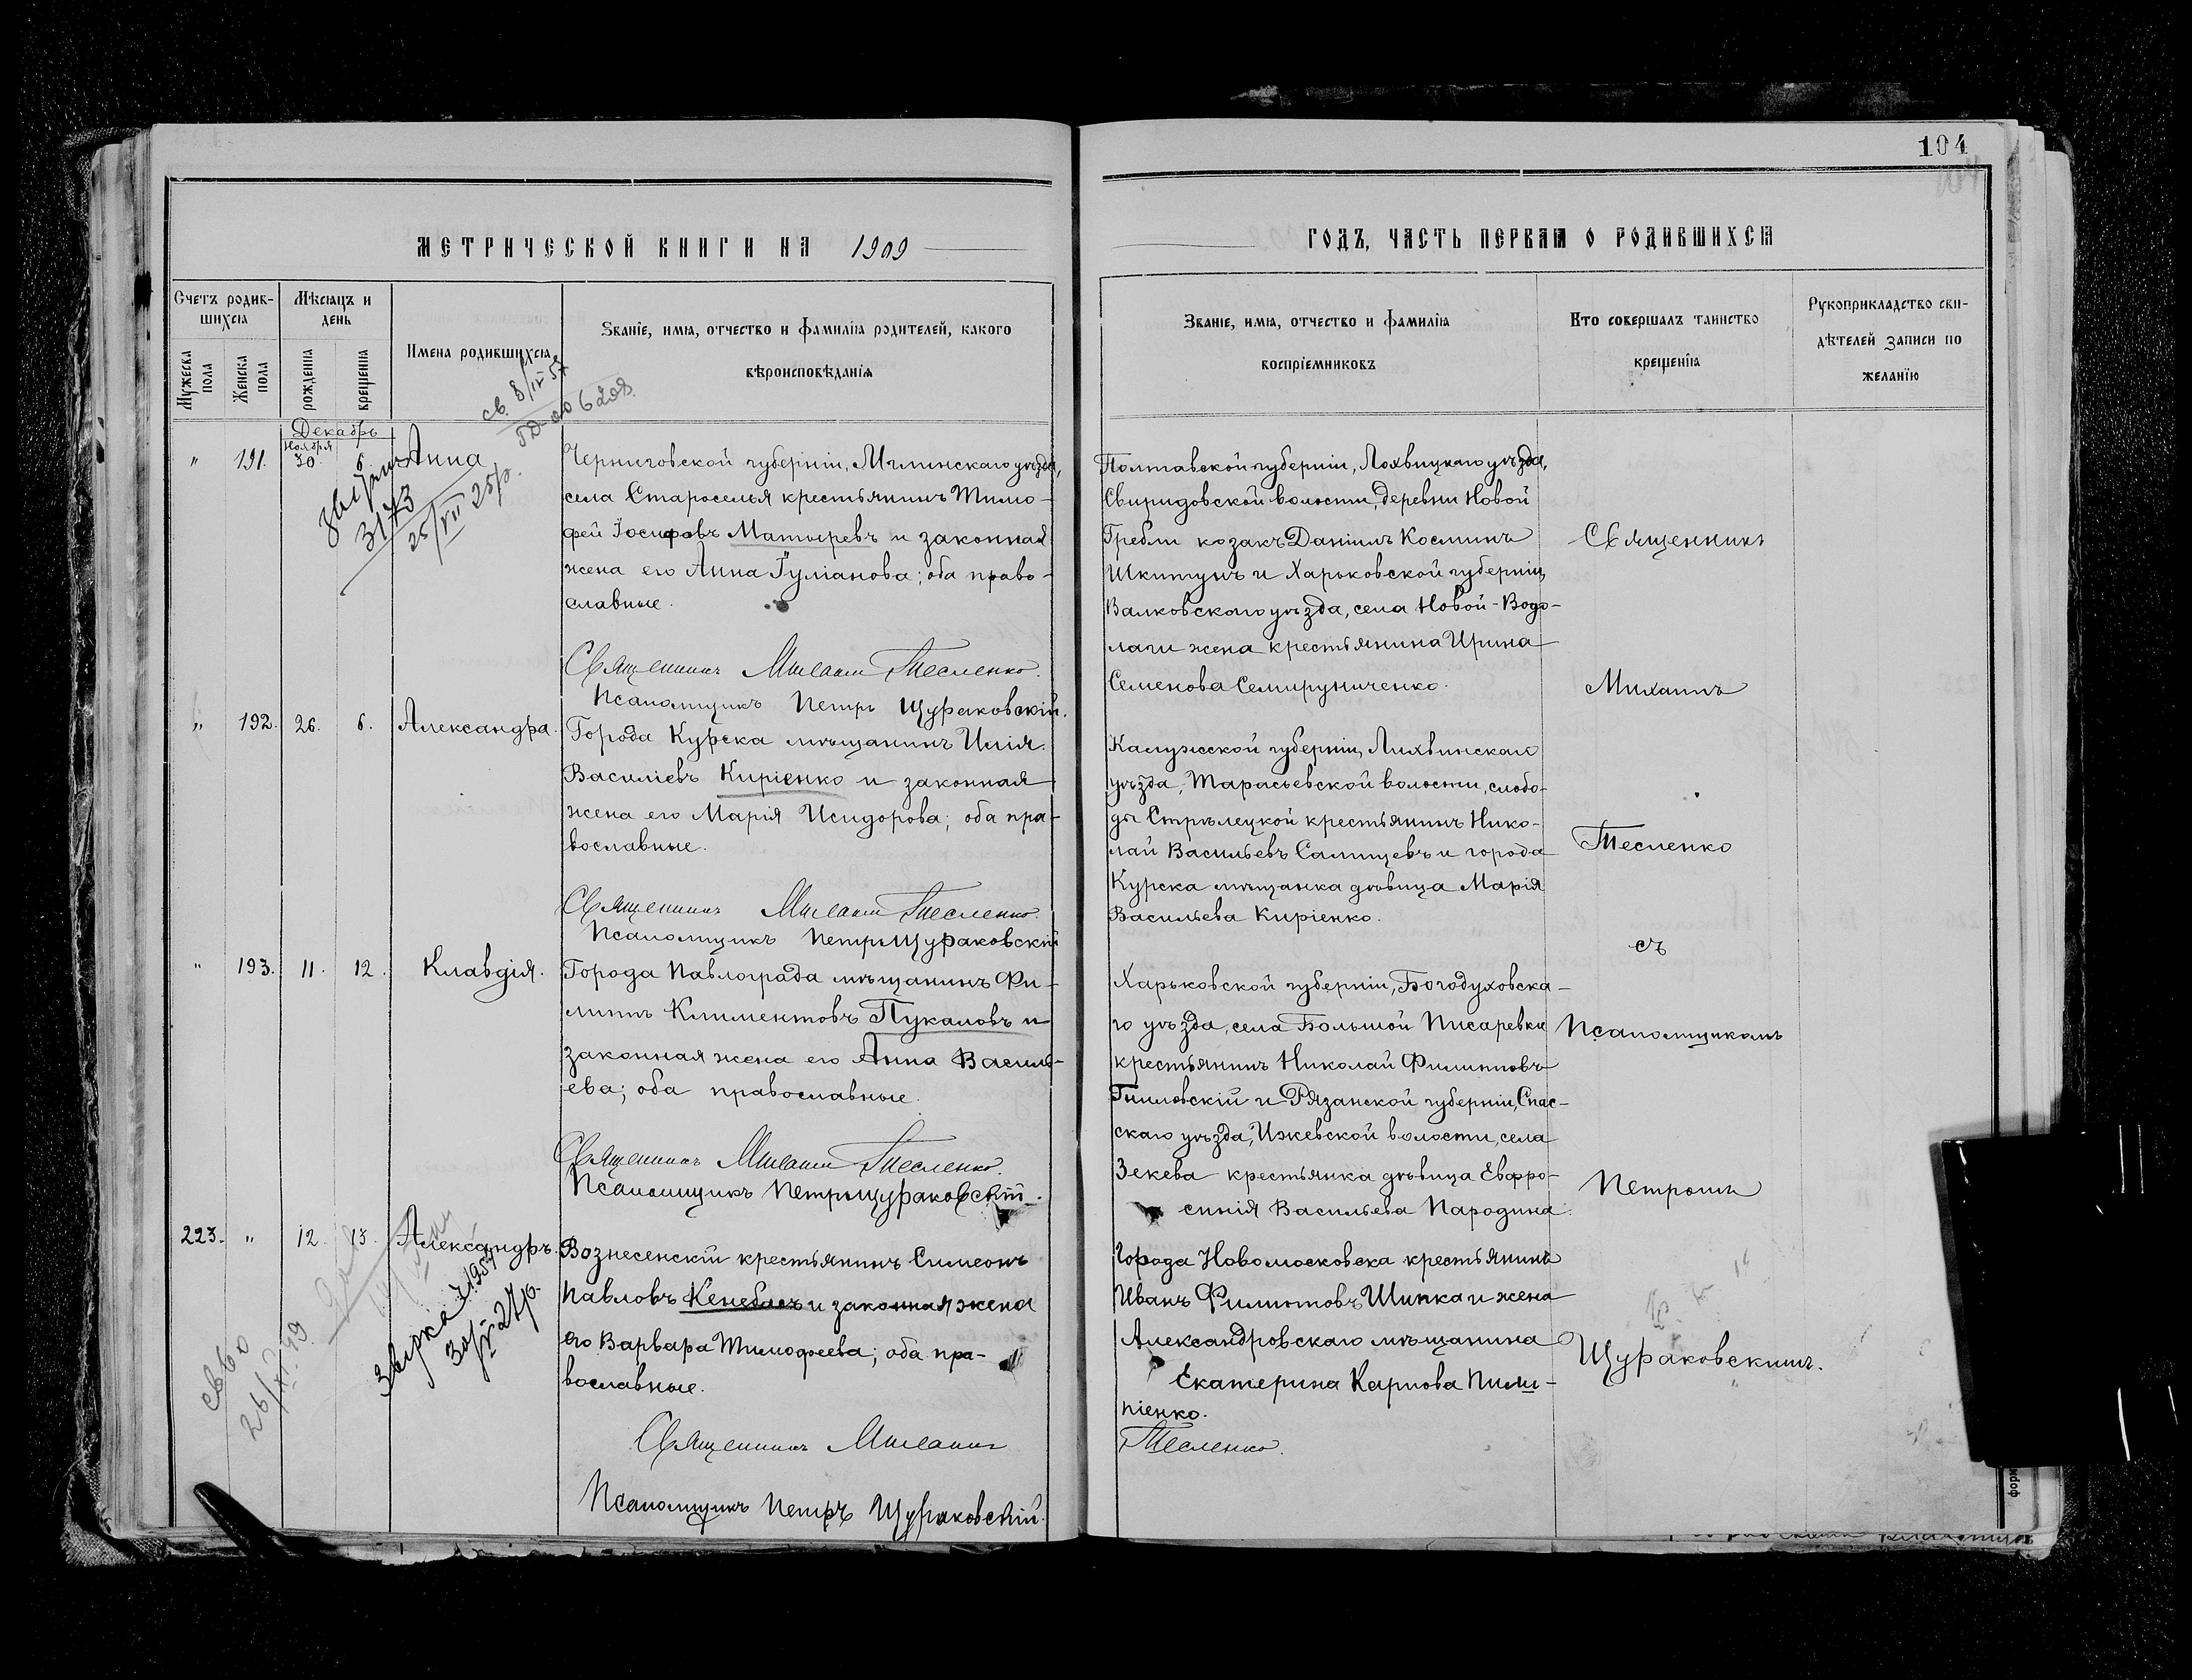 104
МЕТРИЧЕСКОЙ КНИГИ НА 1909
ГОДЪ, ЧАСТЬ ПЕРВАЯ О РОДИВШИХСЯ
Счетъ родив-
шихся
Мужеска пола
Женска пола
Мѣсяцъ и
день
рожденія
крещенія
Имена родившихся
Званіе, имя, отчество и фамилія родителей, какого
вѣроисповѣданія
Званіе, имя, отчество и фамилія
воспріемниковъ
Кто совершалъ таинство
крещенія
Рукоприкладство сви-
дѣтелей записи по
желанію
св. 8/IV 57
00 6208.
Декабрь
Ноября
" 191. 30. 6 Анна
3173
25/VII 25р.
Черниговской губерніи, Мглинскаго уѣзда,
села Староселья крестьянинъ Тимо-
фей Іосифовъ Матыревъ и законная
жена его Анна Гуліанова; оба право-
славные.
Священникъ Михаилъ Тесленко.
Псаломщикъ Петръ Щураковскій.
Полтавской губерніи, Лохвицкаго уѣзда,
Свиридовской волости, деревни Новой
Гребли козакъ Даніилъ Косминъ
Шкитунъ и Харьковской губерніи,
Валковскаго уѣзда, села Новой-Водо-
лаги жена крестьянина Ирина
Семенова Семируниченко.
" 192. 26. 6. Александра.
Города Курска мѣщанинъ Илія
Василіевъ Киріенко и законная
жена его Марія Исидорова; оба пра-
вославные.
Священникъ Михаилъ Тесленко.
Псаломщикъ Петръ Щураковскій
Калужской губерніи, Лихвинскаго
уѣзда, Тарасьевской волости, слобо-
ды Стрѣлецкой крестьянинъ Нико-
лай Васильевъ Салищевъ и города
Курска мѣщанка дѣвица Марія
Васильева Киріенко.
" 193. 11. 12. Клавдія.
Города Павлограда мѣщанинъ Фи-
липпъ Климентовъ Пукаловъ и
законная жена его Анна Василь-
ева; оба православные.
Священникъ Михаилъ Тесленко.
Псаломщикъ Петръ Щураковскій.
Харьковской губерніи, Богодуховска-
го уѣзда, села Большой Писаревки
крестьянинъ Николай Филипповъ
Гниловскій и Рязанской губерніи, Спас-
скаго уѣзда, Ижевской волости, села
Зекева крестьянка дѣвица Евфро-
синія Васильева Народина.
223. " 12. 13. Александръ.
Звѣрка 1954
30/V 27р.
св 60
26/XI 49
Вознесенскій крестьянинъ Симеонъ
Павловъ Кенебасъ и законная жена
его Варвара Тимофеева; оба пра-
вославные.
Священникъ Михаилъ
Тесленко.
Псаломщикъ Петръ Щураковскій.
Города Новомосковска крестьянинъ
Иванъ Филиповъ Шипка и жена
Александровскаго мѣщанина
Екатерина Карпова Пили-
піенко.
Священникъ
Михаилъ
Тесленко
съ
Псаломщикомъ
Петромъ
Щураковскимъ.